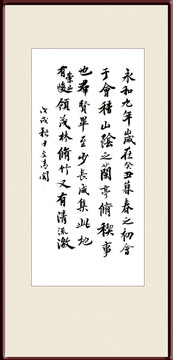 永和九年歲在癸丑暮春之初會
于會稽山陰之蘭亭脩稧事
也群賢畢至少長咸集此地
有崇山峻領茂林脩竹又有清流激
戊戌秋